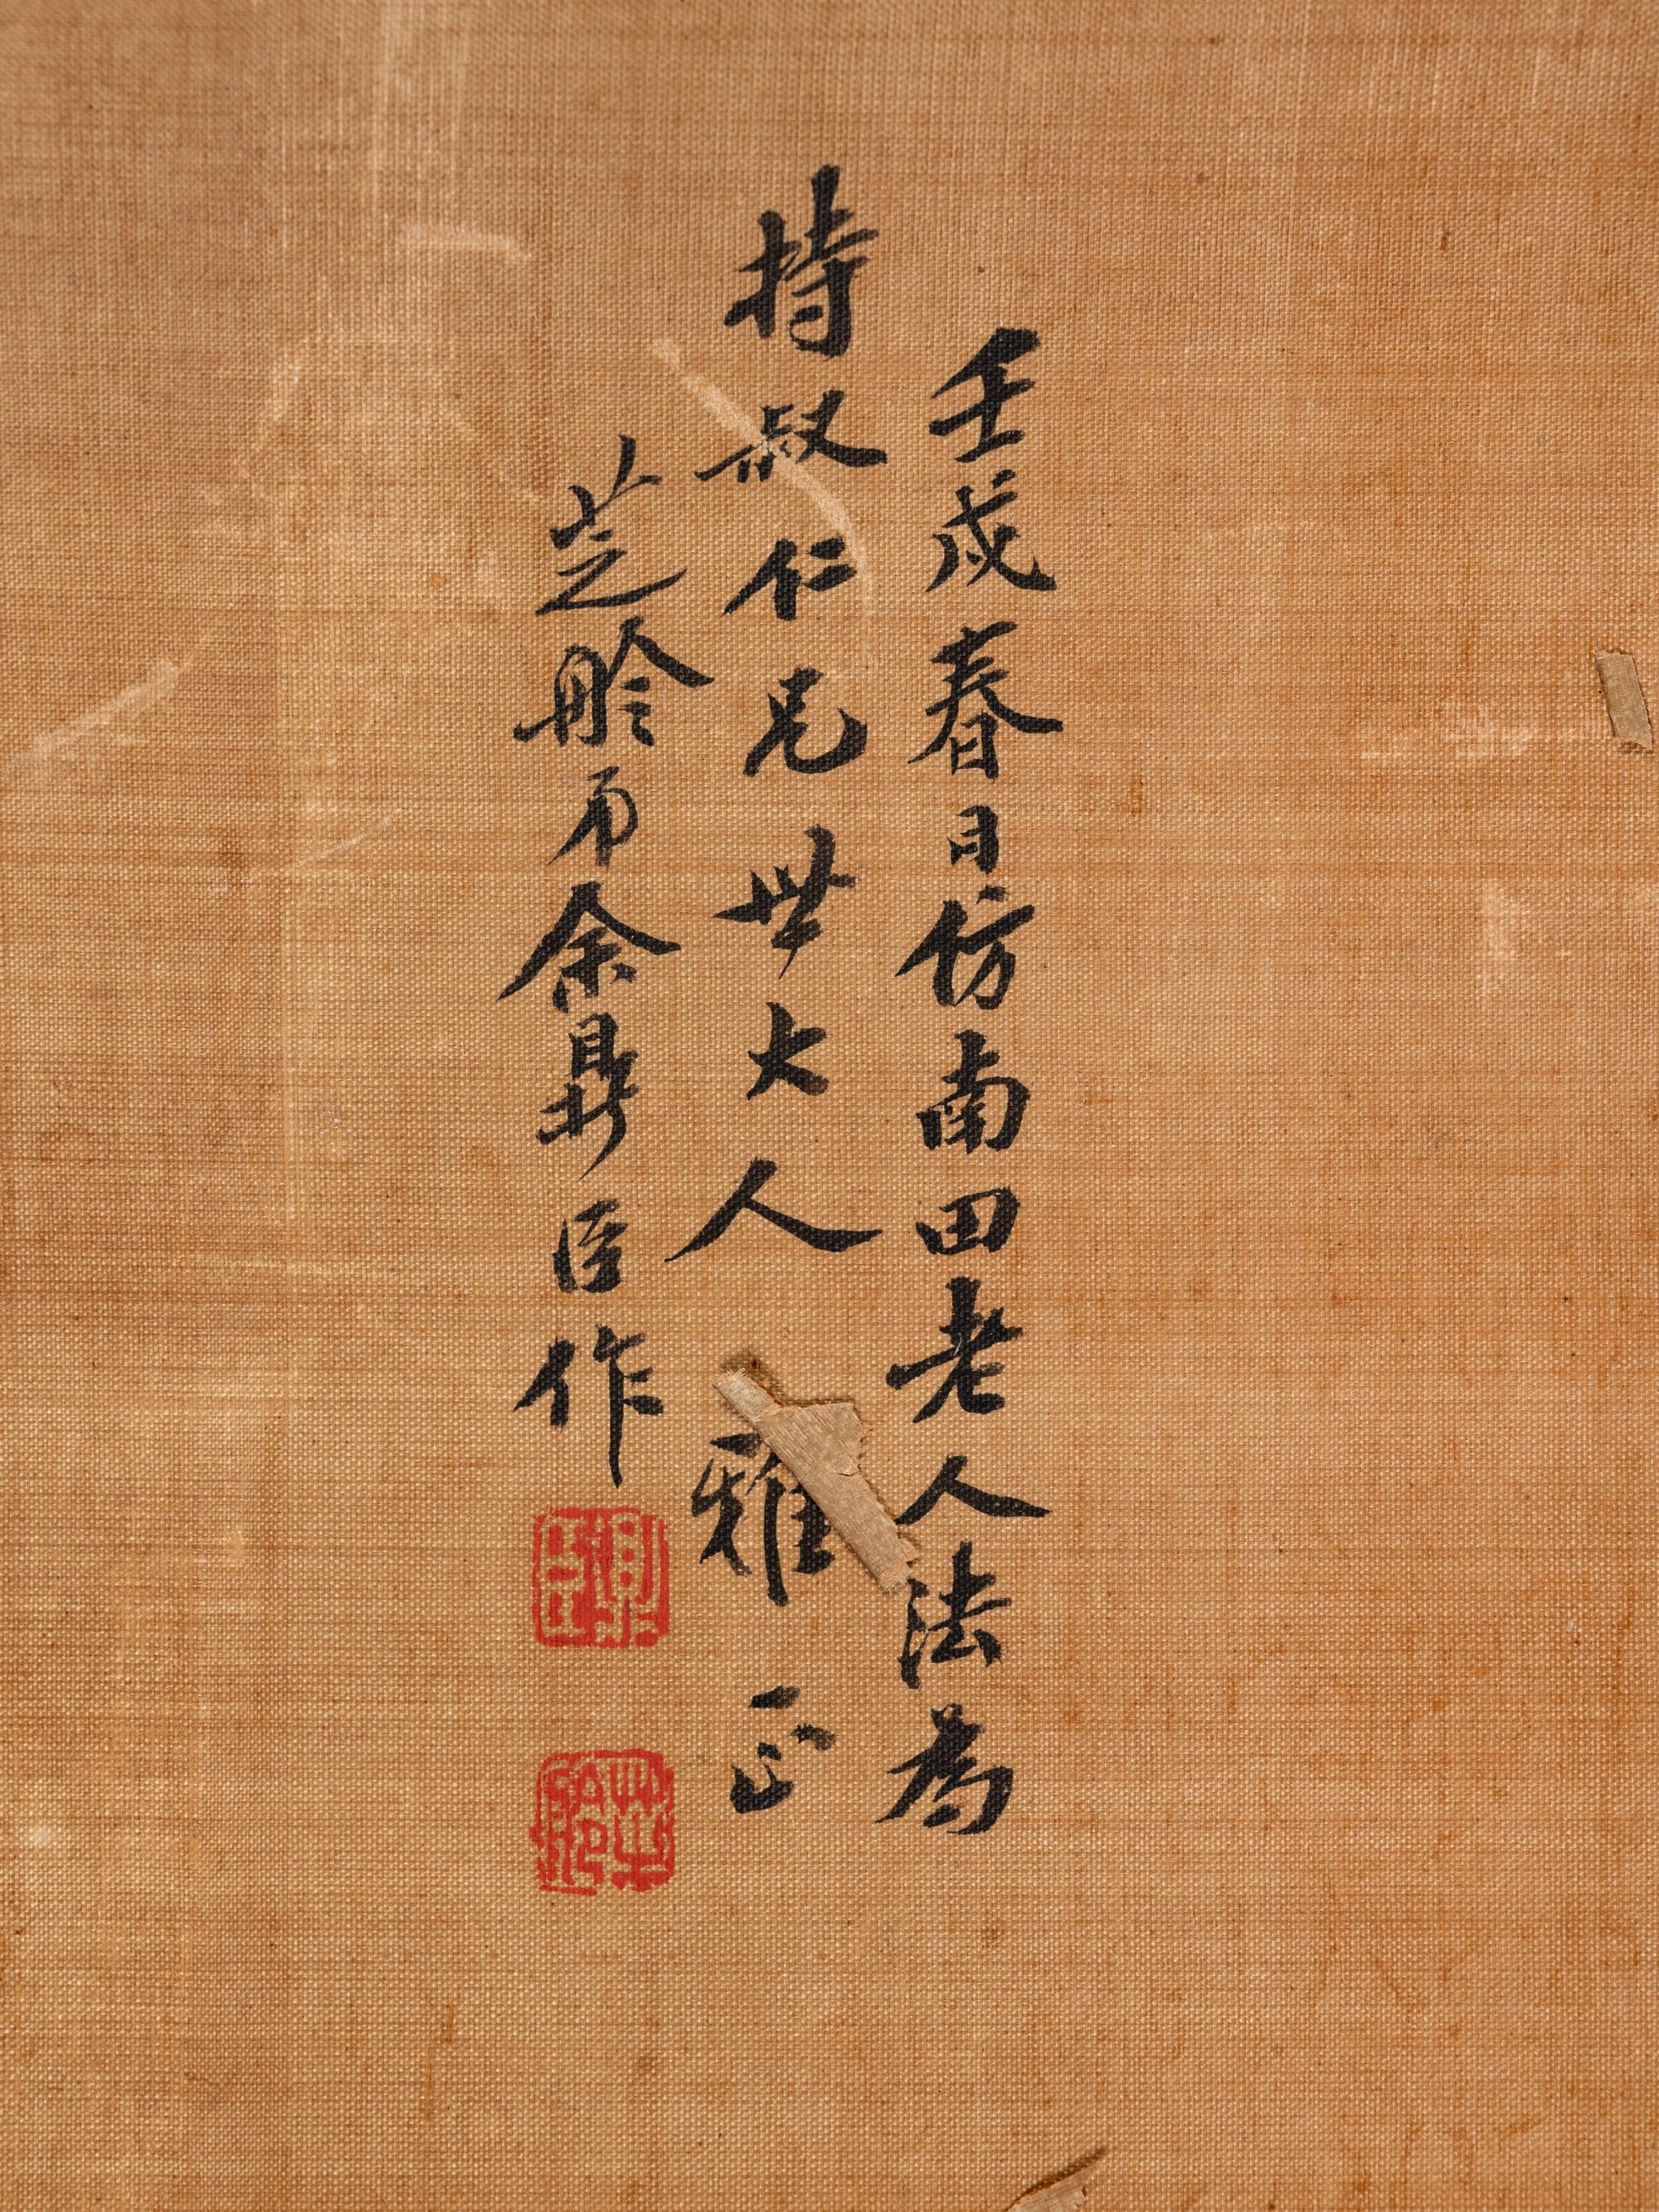 壬戌春日仿南田老人法為
持叔仁兄世大人 雅正
芝舲弟余鼎臣作
鼎臣
芝舲